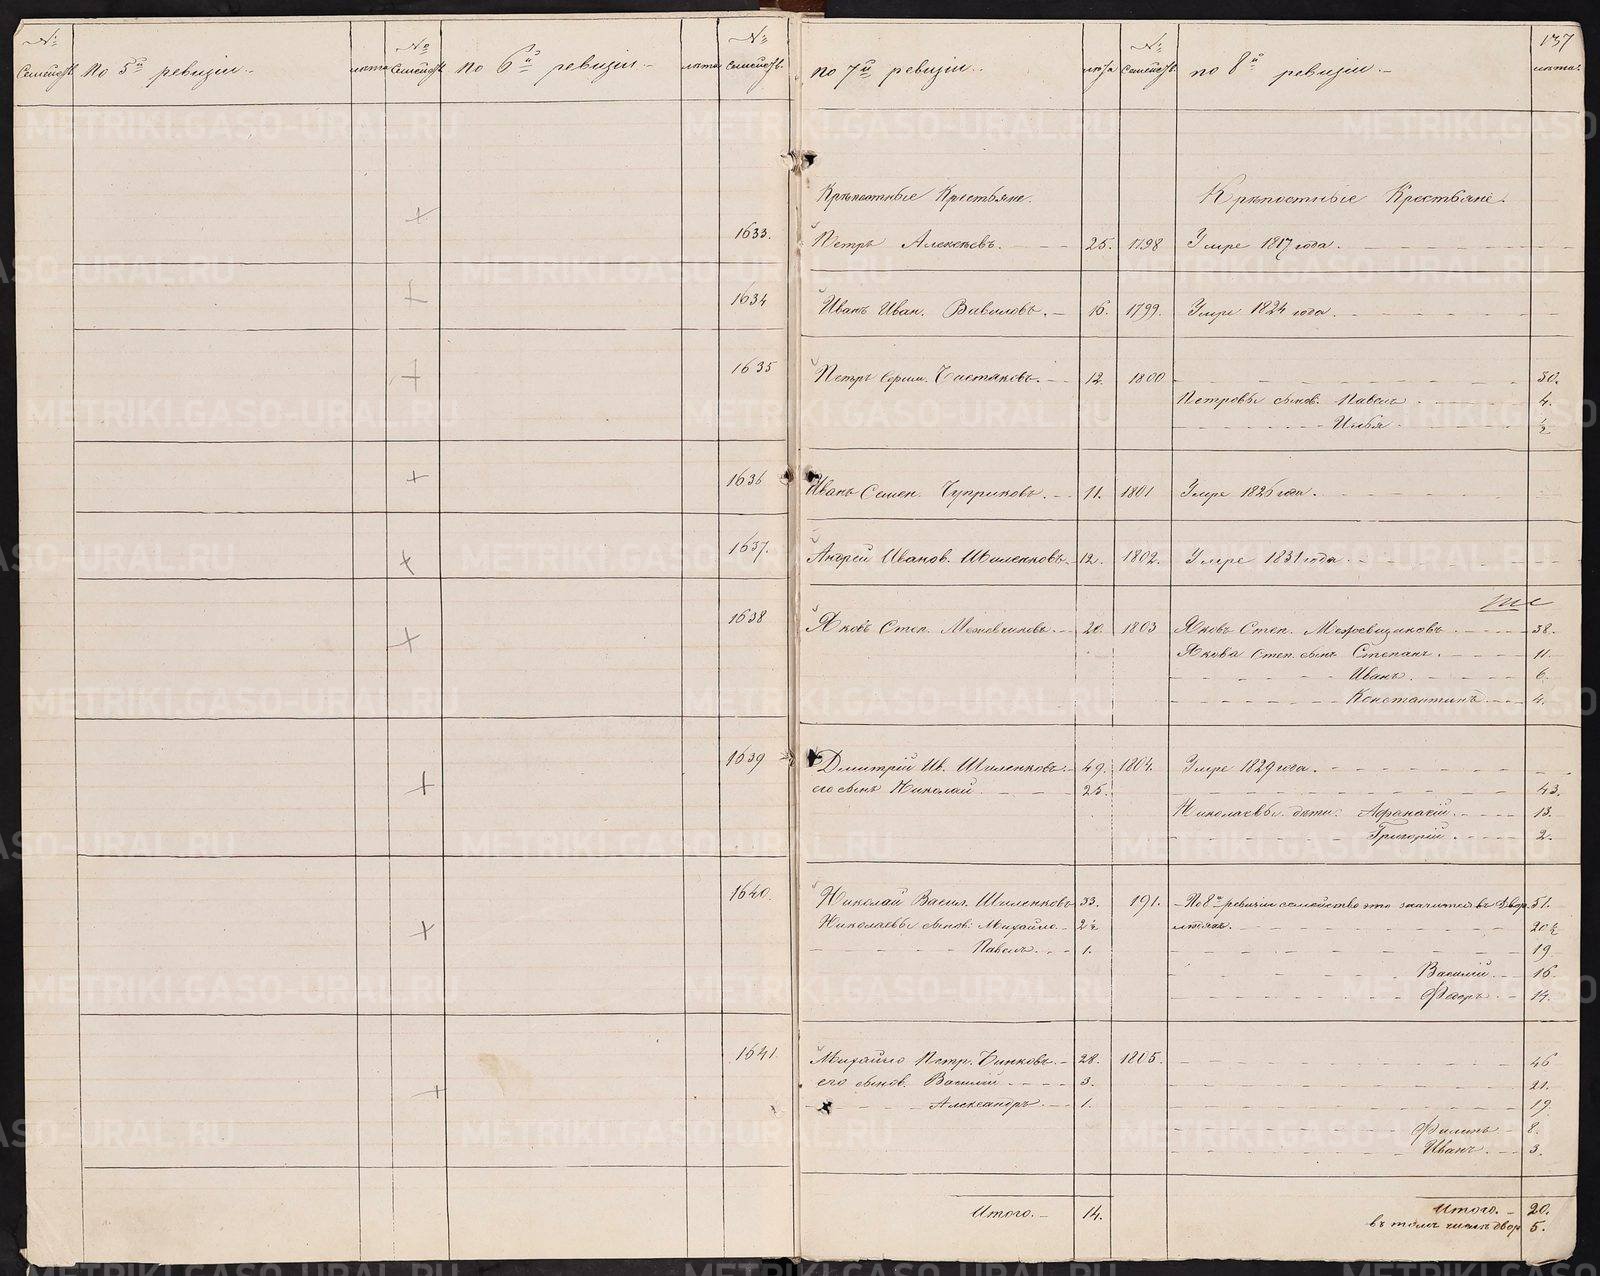 № Семейств. По 5й ревизіи. лѣта № Семейств. по 6й ревизіи. лѣта № Семейств. по 7й ревизіи. лѣта № Семейств. по 8й ревизіи. лѣта. 137
Крѣпостные Крестьяне. Крѣпостные Крестьяне.
1633. Петръ Алексѣевъ. 25. 1798 Умре 1817 года.
1634 Иванъ Иван. Вавиловъ. 16. 1799. Умре 1824 года.
1635 Петръ 12. 1800 30.
Петровы сынов. Павелъ 4.
Илья ½
1636 Иванъ Семен. Чуприковъ. 11. 1801 Умре 1826 года.
1637. Андрей Иванов. Шиленковъ. 12. 1802. Умре 1831 года.
1638 Яковъ Степ. 20. 1803 Яковъ Степ. 38.
Якова Степ. сынъ Степанъ. 11
Иванъ. 6.
Константинъ 4.
1639 Дмитрій Ив. Шиленковъ. 49. 1804. Умре 1829 года.
его сынъ Николай 25. 43.
Николаевы дѣти: Афанасій 13.
Григорій. 2.
1640. Николай Васил. Шиленковъ 33. 191. По 8й ревизіи семейство это значится въ двор. 51.
Николаевы сынов: Михайло 2½ 20½
Павелъ. 1. 19
Василій 16
Федоръ. 14.
1641 Михайло Петр. 28. 1805. 46
его сынов. Василій 3. 21.
Александръ. 1. 19
Филипъ 8.
Иванъ. 3.
Итого. 14. Итого. 20.
въ томъ числѣ двор 5.
METRIKI.GASO-URAL.RU